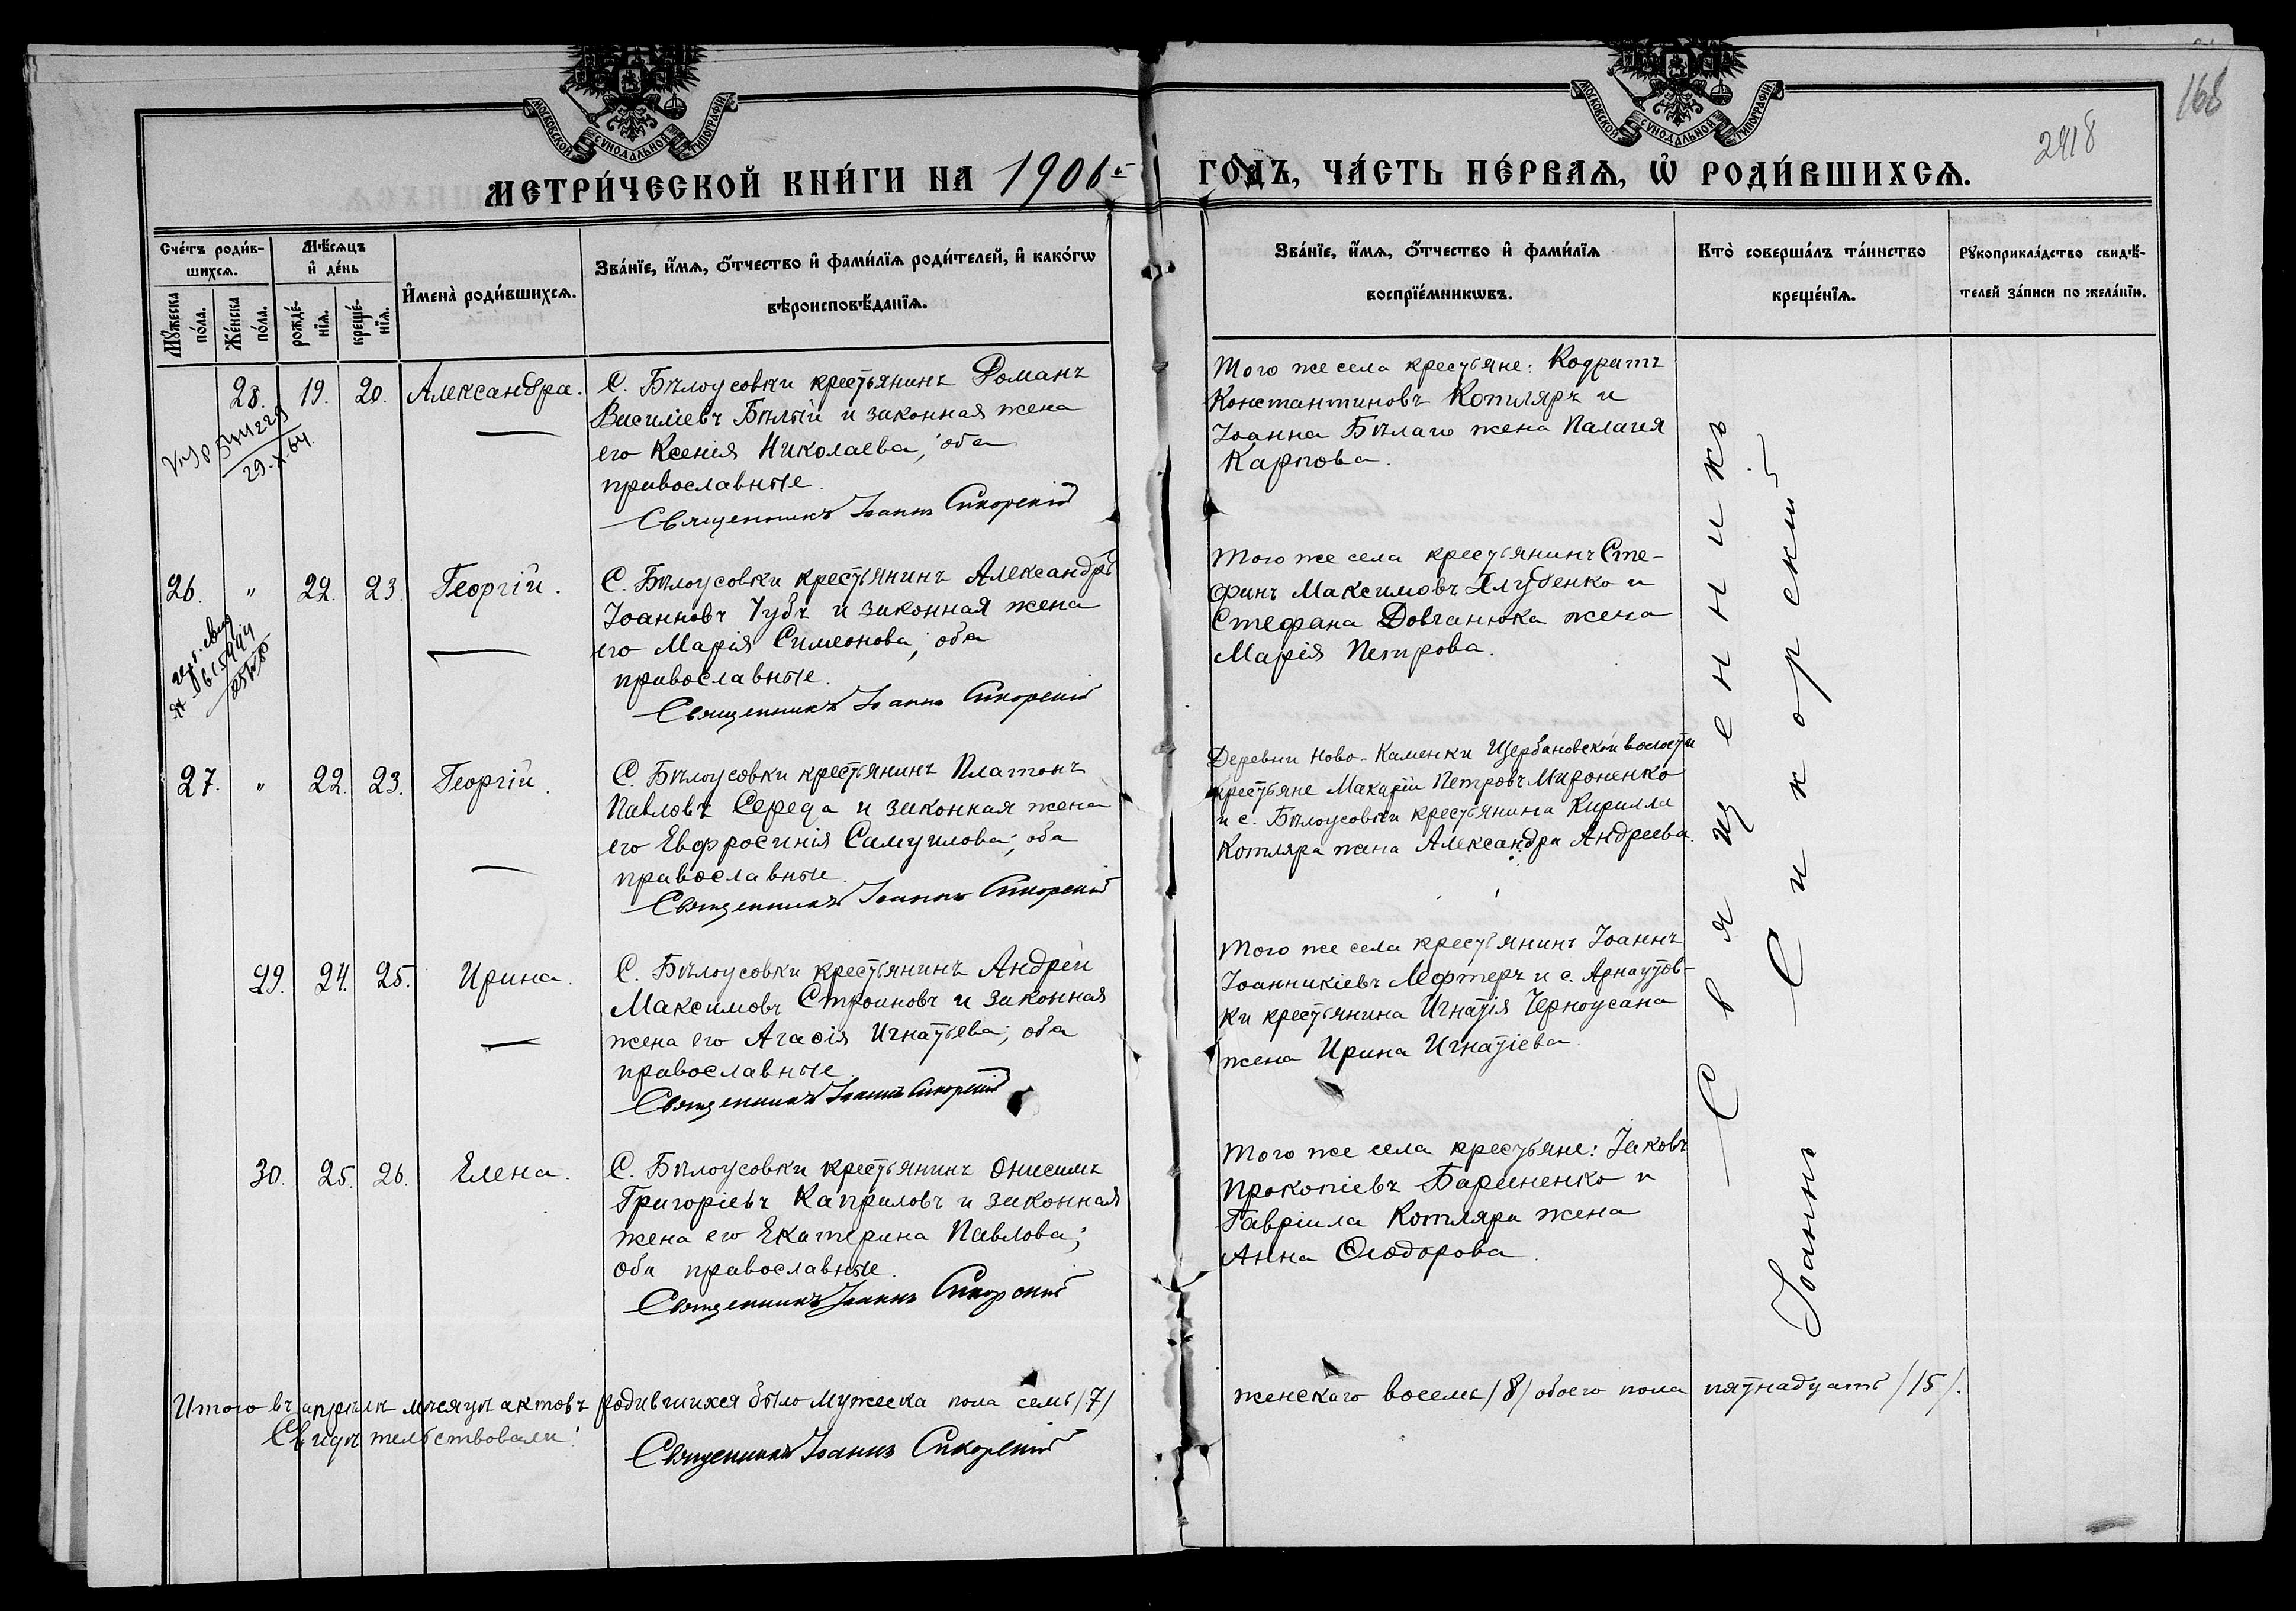 168
2418
МОСКОВСКОЙ СѴНОДАЛЬНОЙ ТИПОГРАФІИ
МОСКОВСКОЙ СѴНОДАЛЬНОЙ ТИПОГРАФІИ
МЕТРИ́ЧЕСКОЙ КНИ́ГИ НА 1906 й ГОДЪ, ЧА́СТЬ ПЕ́РВАѦ, Ѡ҆ РОДИ́ВШИХСѦ.
Сче́тъ роди́в-
шихсѧ.
Мꙋ́жеска по́ла.
Же́нска по́ла.
Мѣ́сѧцъ
и҆ де́нь
рожде́-
нїѧ.
креще́-
нїѧ.
И҆мена̀ роди́вшихсѧ.
Зва́нїе, и҆́мѧ, ѻ҆́тчество и҆ фами́лїѧ роди́телей, и҆ како́гѡ
вѣроисповѣ́данїѧ.
Зва́нїе, и҆́мѧ, ѻ҆́тчество и҆ фами́лїѧ
воспрїе́мникѡвъ.
Кто̀ соверша́лъ та́инство
креще́нїѧ.
Рꙋкоприкла́дство свидѣ́-
телей за́писи по жела́нїю.
28. 19. 20. Александра.
29.X.64.
С. Бѣлоусовки крестьянинъ Романъ
Василіевъ Бѣлый и законная жена
его Ксенія Николаева, оба
православные.
Священникъ Іоаннъ Сикорскій
Того же села крестьяне: Кодратъ
Константиновъ Котляръ и
Іоанна Бѣлаго жена Палагея
Карпова.
26. " 22. 23. Георгій.
С. Бѣлоусовки крестьянинъ Александръ
Іоанновъ Чубъ и законная жена
его Марія Симеонова, оба
православные.
Священникъ Іоаннъ Сикорскій
Того же села крестьянинъ Сте-
фанъ Максимовъ Голубенко и
Стефана Довганюка жена
Марія Петрова.
27. " 22. 23. Георгій.
С. Бѣлоусовки крестьянинъ Платонъ
Павловъ Середа и законная жена
его Евфросинія Самуилова; оба
православные.
Священникъ Іоаннъ Сикорскій
Деревни Ново-Каменки Щербановской волости
крестьяне Макарій Петровъ Мироненко
и с. Бѣлоусовки крестьянина Кирилла
Котляра жена Александра Андреева.
29. 24. 25. Ирина.
С. Бѣлоусовки крестьянинъ Андрей
Максимовъ Строиновъ и законная
жена его Агафія Игнатьева; оба
православные
Священникъ Іоаннъ Сикорскій
Того же села крестьянинъ Іоаннъ
Іоанникіевъ Мефтеръ и с. Арнаутов-
ки крестьянина Игнатія Черноусана
жена Ирина Игнатіева.
30. 25. 26. Елена.
С. Бѣлоусовки крестьянинъ Онисимъ
Григоріевъ Каприловъ и законная
жена его Екатерина Павлова;
оба православные.
Священникъ Іоаннъ Сикорскій
Того же села крестьяне: Іаковъ
Прокопіевъ Бариненко и
Гавріила Котляра жена
Анна Ѳеодорова.
Священникъ
Іоаннъ Сикорский
Итого въ апрѣлѣ мѣсяцѣ актовъ родившихся было мужеска пола семь /7/ женскаго восемь /8/ обоего пола пятнадцать /15/.
Свидѣтельствовали:
Священникъ Іоаннъ Сикорскій